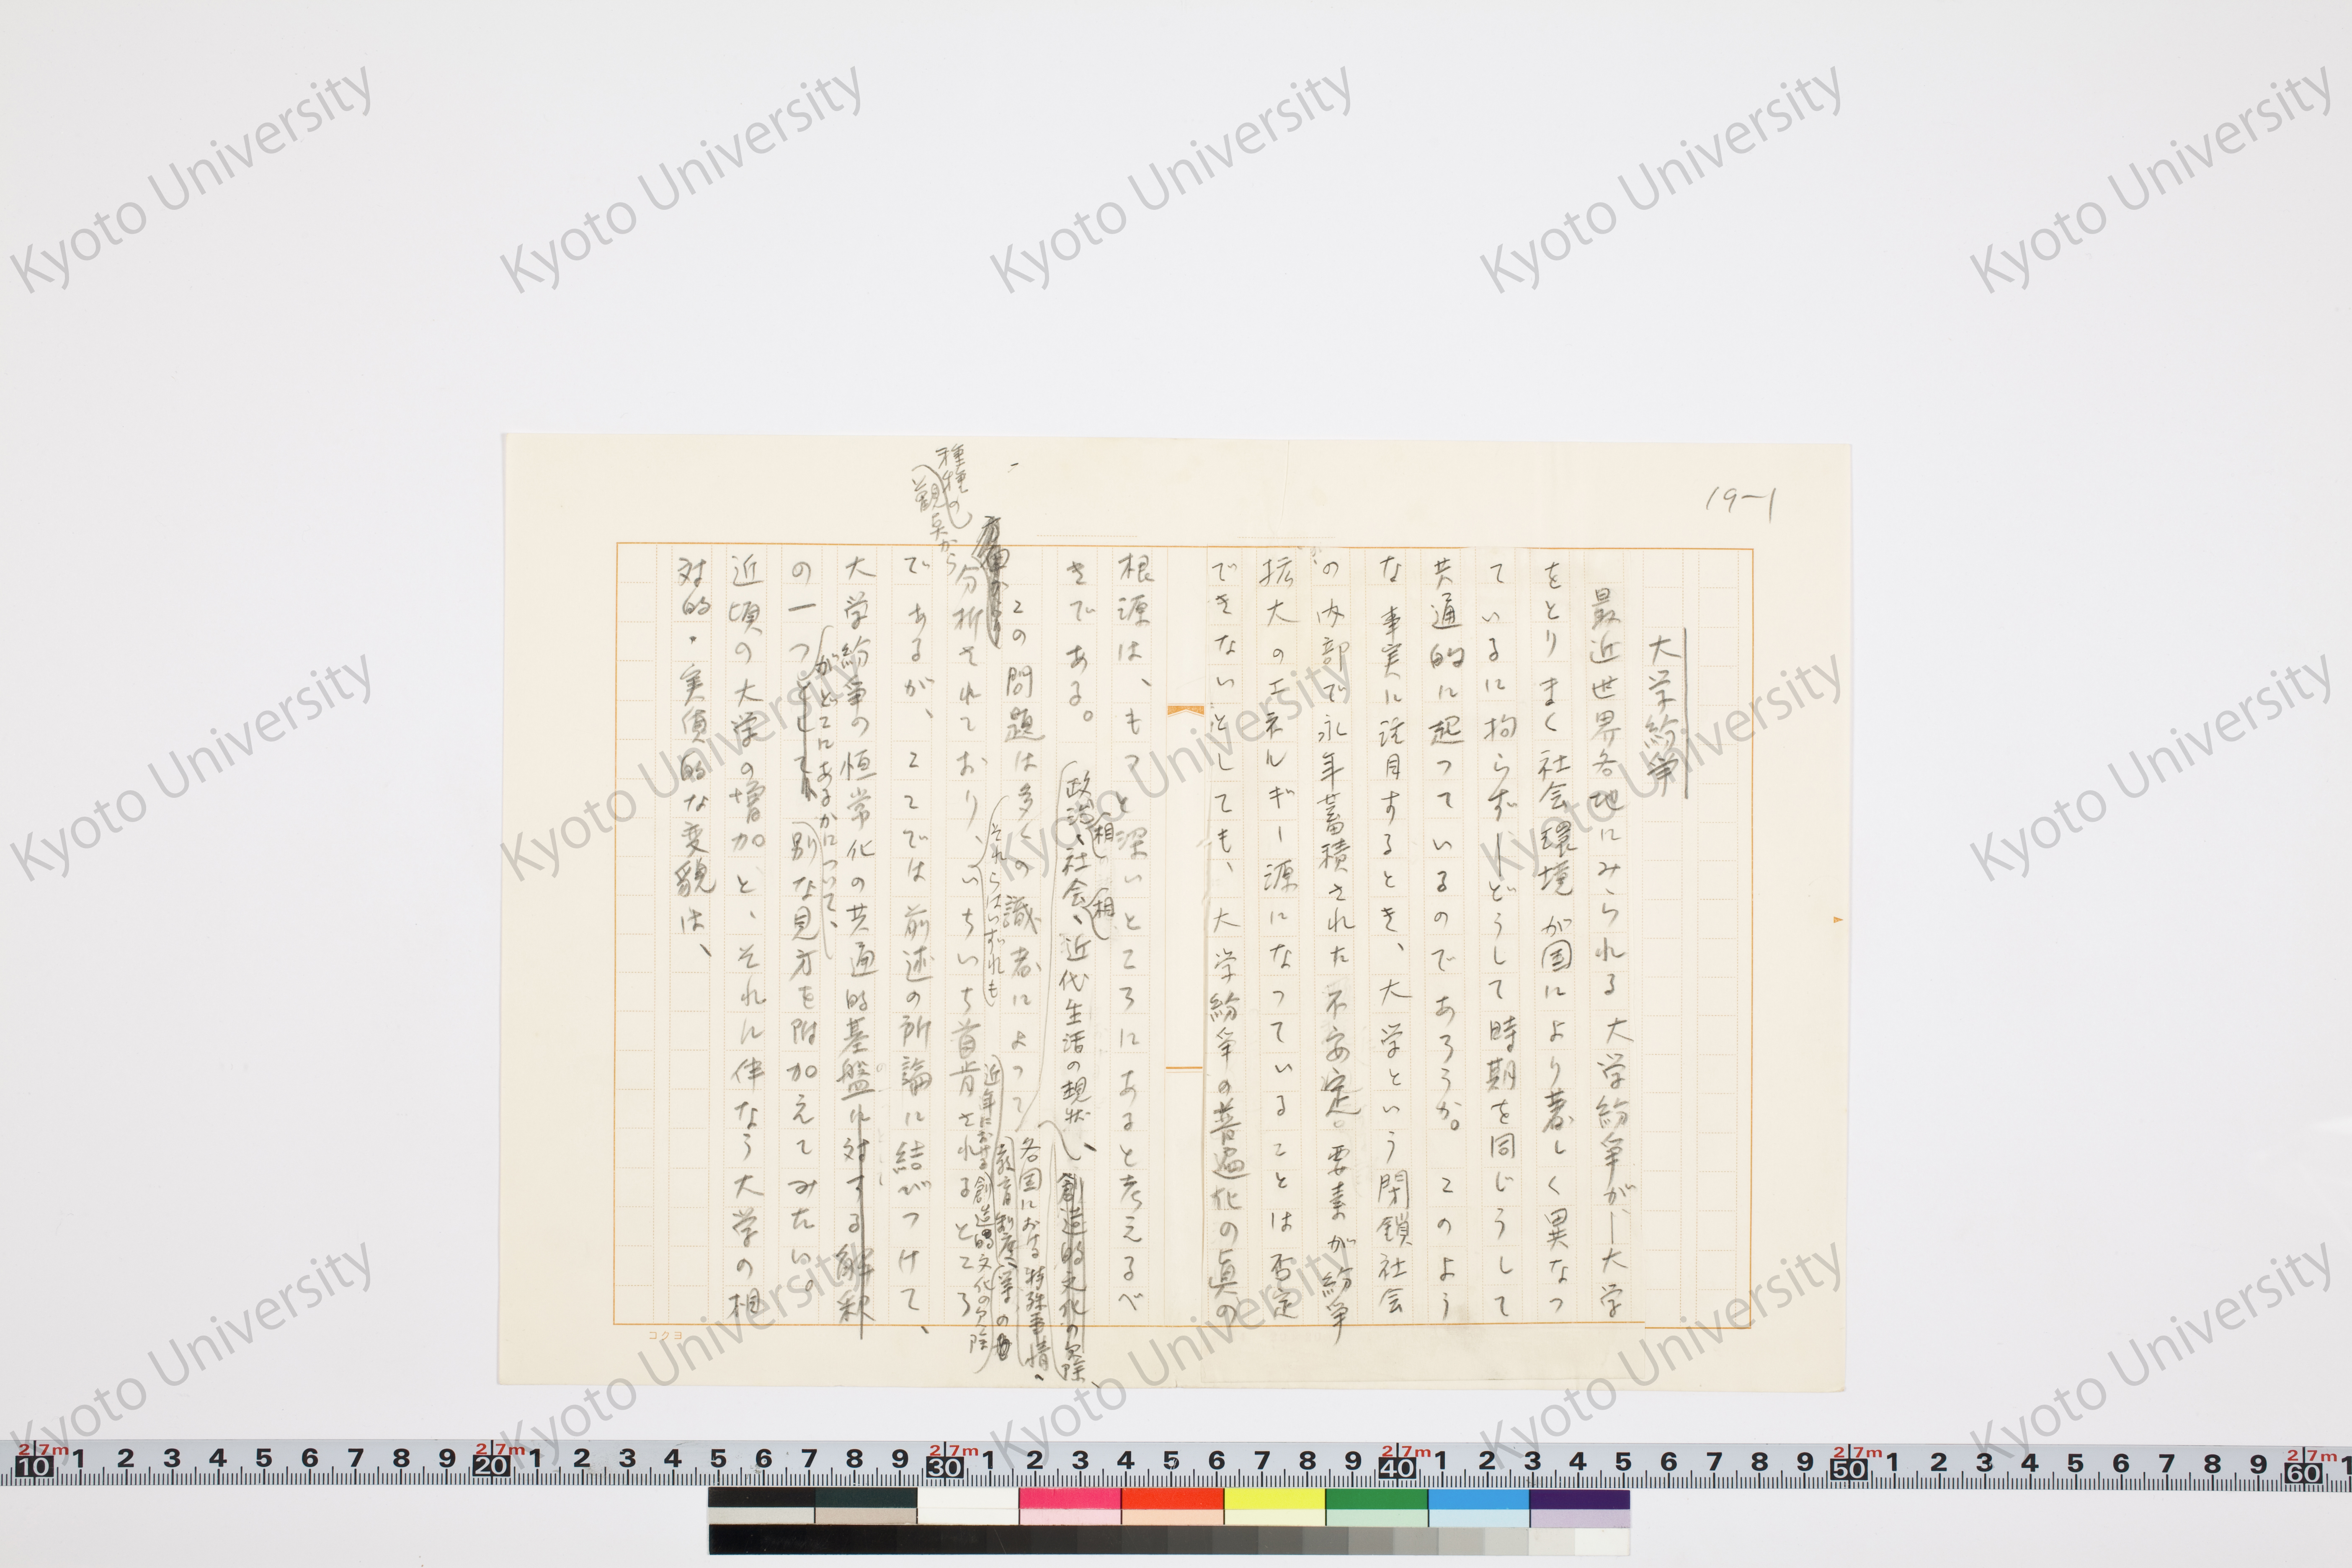 19-1
大学紛争
最近世界各地にみられる大学紛争が―大学
をとりまく社会環境が国により著しく異なつ
ているに拘らず―どうして時期を同じうして
共通的に起つているのであろうか。このよう
な事実に注目するとき、大学という閉鎖社会
の内部で永年蓄積された不安定。要素が紛争
拡大のエネルギー源になつていることは否定
できないとしても、大学紛争の普遍化の真の
根源は、もつと深いところにあると考えるべ
きである。
政治、社会、近代生活の
相
相
創造的文化の欠除、
各国における特殊事情、
教育制度
この問題は多くの識者によつて
近年における創造的文化の欠除
それらはいずれも
種種の
観点から
分析されており、いちいち首肯されるところ
であるが、ここでは前述の所論に結びつけて、
大学紛争の恒常化の共通的基盤に対する解釈
がどこにあるかについて、
の一つとして、別な見方を附加えてみたい。
近頃の大学の増加と、それに伴なう大学の相
対的・実質的な変貌は、
コクヨ
Kyoto University